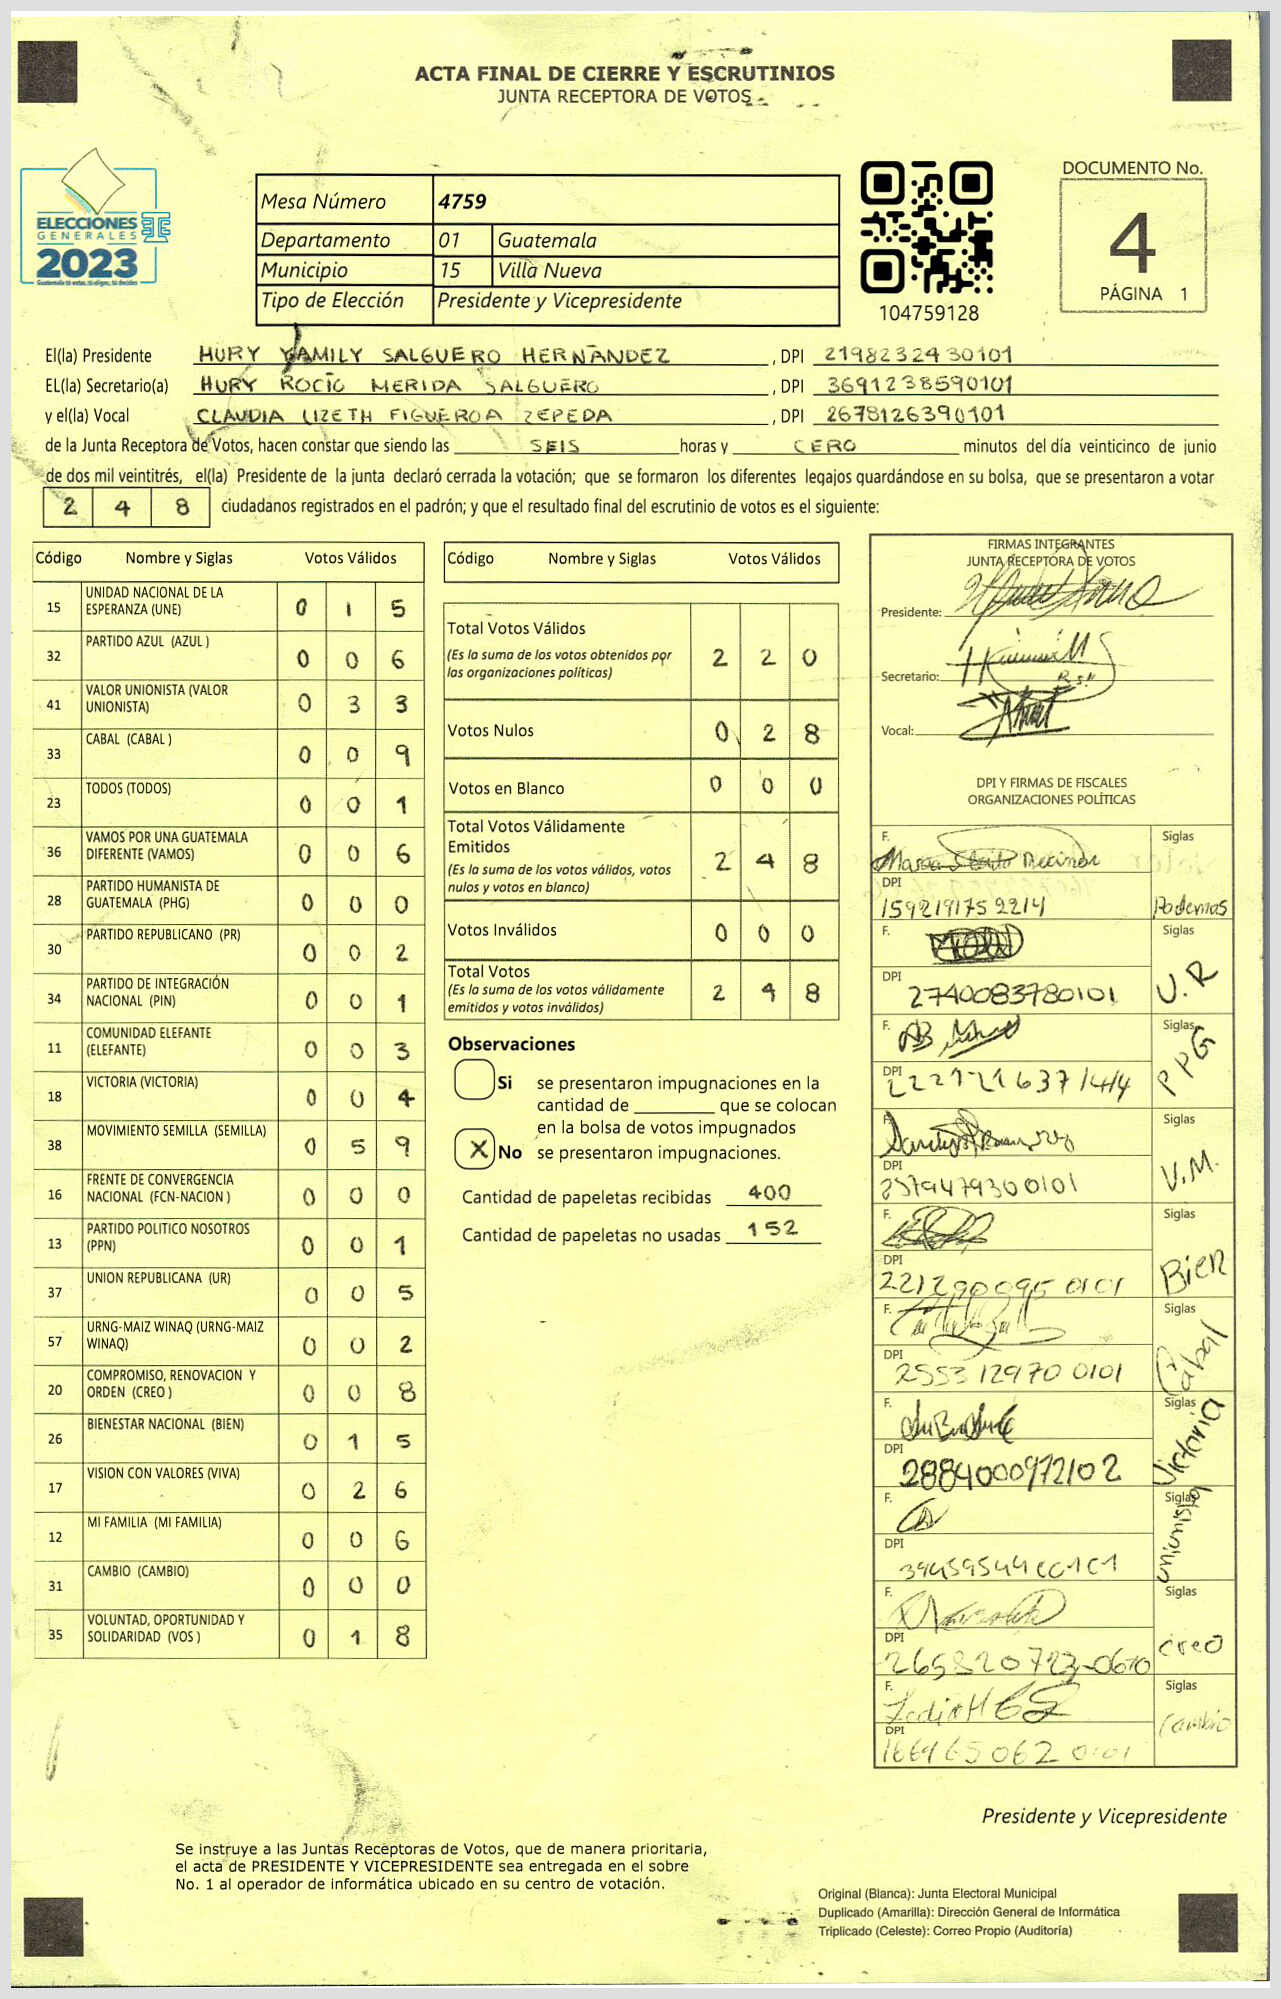 ACTA FINAL DE CIERRE Y ESCRUTINIOS
JUNTA RECEPTORA DE VOTOS
ELECCIONES
GENERALES
2023
Guatemala tú votas, tú eliges, tú decides
Mesa Número 4759
Departamento 01 Guatemala
Municipio 15 Villa Nueva
Tipo de Elección Presidente y Vicepresidente
104759128
DOCUMENTO No.
4
PÁGINA 1
El(la) Presidente HURY YAMILY SALGUERO HERNÀNDEZ , DPI 2198232430101
EL(la) Secretario(a) HURY ROCÍO MERIDA SALGUERO , DPI 3691238590101
y el(la) Vocal CLAUDIA LIZETH FIGUEROA ZEPEDA , DPI 2678126390101
de la Junta Receptora de Votos, hacen constar que siendo las SEIS horas y CERO minutos del día veinticinco de junio
de dos mil veintitrés, el(la) Presidente de la junta declaró cerrada la votación; que se formaron los diferentes legajos guardándose en su bolsa, que se presentaron a votar
2 4 8 ciudadanos registrados en el padrón; y que el resultado final del escrutinio de votos es el siguiente:
Código Nombre y Siglas Votos Válidos
15 UNIDAD NACIONAL DE LA
ESPERANZA (UNE) 0 1 5
32 PARTIDO AZUL (AZUL ) 0 0 6
41 VALOR UNIONISTA (VALOR
UNIONISTA) 0 3 3
33 CABAL (CABAL ) 0 0 9
23 TODOS (TODOS) 0 0 1
36 VAMOS POR UNA GUATEMALA
DIFERENTE (VAMOS) 0 0 6
28 PARTIDO HUMANISTA DE
GUATEMALA (PHG) 0 0 0
30 PARTIDO REPUBLICANO (PR) 0 0 2
34 PARTIDO DE INTEGRACIÓN
NACIONAL (PIN) 0 0 1
11 COMUNIDAD ELEFANTE
(ELEFANTE) 0 0 3
18 VICTORIA (VICTORIA) 0 0 4
38 MOVIMIENTO SEMILLA (SEMILLA) 0 5 9
16 FRENTE DE CONVERGENCIA
NACIONAL (FCN-NACION ) 0 0 0
13 PARTIDO POLITICO NOSOTROS
(PPN) 0 0 1
37 UNION REPUBLICANA (UR) 0 0 5
57 URNG-MAIZ WINAQ (URNG-MAIZ
WINAQ) 0 0 2
20 COMPROMISO, RENOVACION Y
ORDEN (CREO ) 0 0 8
26 BIENESTAR NACIONAL (BIEN) 0 1 5
17 VISION CON VALORES (VIVA) 0 2 6
12 MI FAMILIA (MI FAMILIA) 0 0 6
31 CAMBIO (CAMBIO) 0 0 0
35 VOLUNTAD, OPORTUNIDAD Y
SOLIDARIDAD (VOS ) 0 1 8
Código Nombre y Siglas Votos Válidos
Total Votos Válidos
(Es la suma de los votos obtenidos por
las organizaciones políticas) 2 2 0
Votos Nulos 0 2 8
Votos en Blanco 0 0 0
Total Votos Válidamente
Emitidos
(Es la suma de los votos válidos, votos
nulos y votos en blanco) 2 4 8
Votos Inválidos 0 0 0
Total Votos
(Es la suma de los votos válidamente
emitidos y votos inválidos) 2 4 8
Observaciones
Si se presentaron impugnaciones en la
cantidad de ________ que se colocan
en la bolsa de votos impugnados
X No se presentaron impugnaciones.
Cantidad de papeletas recibidas 400
Cantidad de papeletas no usadas 152
FIRMAS INTEGRANTES
JUNTA RECEPTORA DE VOTOS
Presidente:
Secretario:
Vocal:
DPI Y FIRMAS DE FISCALES
ORGANIZACIONES POLÍTICAS
F. Siglas
DPI
1592191752214 Podemos
F. Siglas
DPI
2740083780101 U.R
F. Siglas
DPI
PPG
F. Siglas
DPI
2579479300101 V.M.
F. Siglas
DPI
2212900950101 Bien
F. Siglas
DPI
2553129700101 Cabal
F. Siglas
DPI
2884000972102 Victoria
F. Siglas
DPI
unionista
F. Siglas
DPI
265820723-0610 creo
F. Siglas
DPI
cambio
Presidente y Vicepresidente
Se instruye a las Juntas Receptoras de Votos, que de manera prioritaria,
el acta de PRESIDENTE Y VICEPRESIDENTE sea entregada en el sobre
No. 1 al operador de informática ubicado en su centro de votación.
Original (Blanca): Junta Electoral Municipal
Duplicado (Amarilla): Dirección General de Informática
Triplicado (Celeste): Correo Propio (Auditoría)